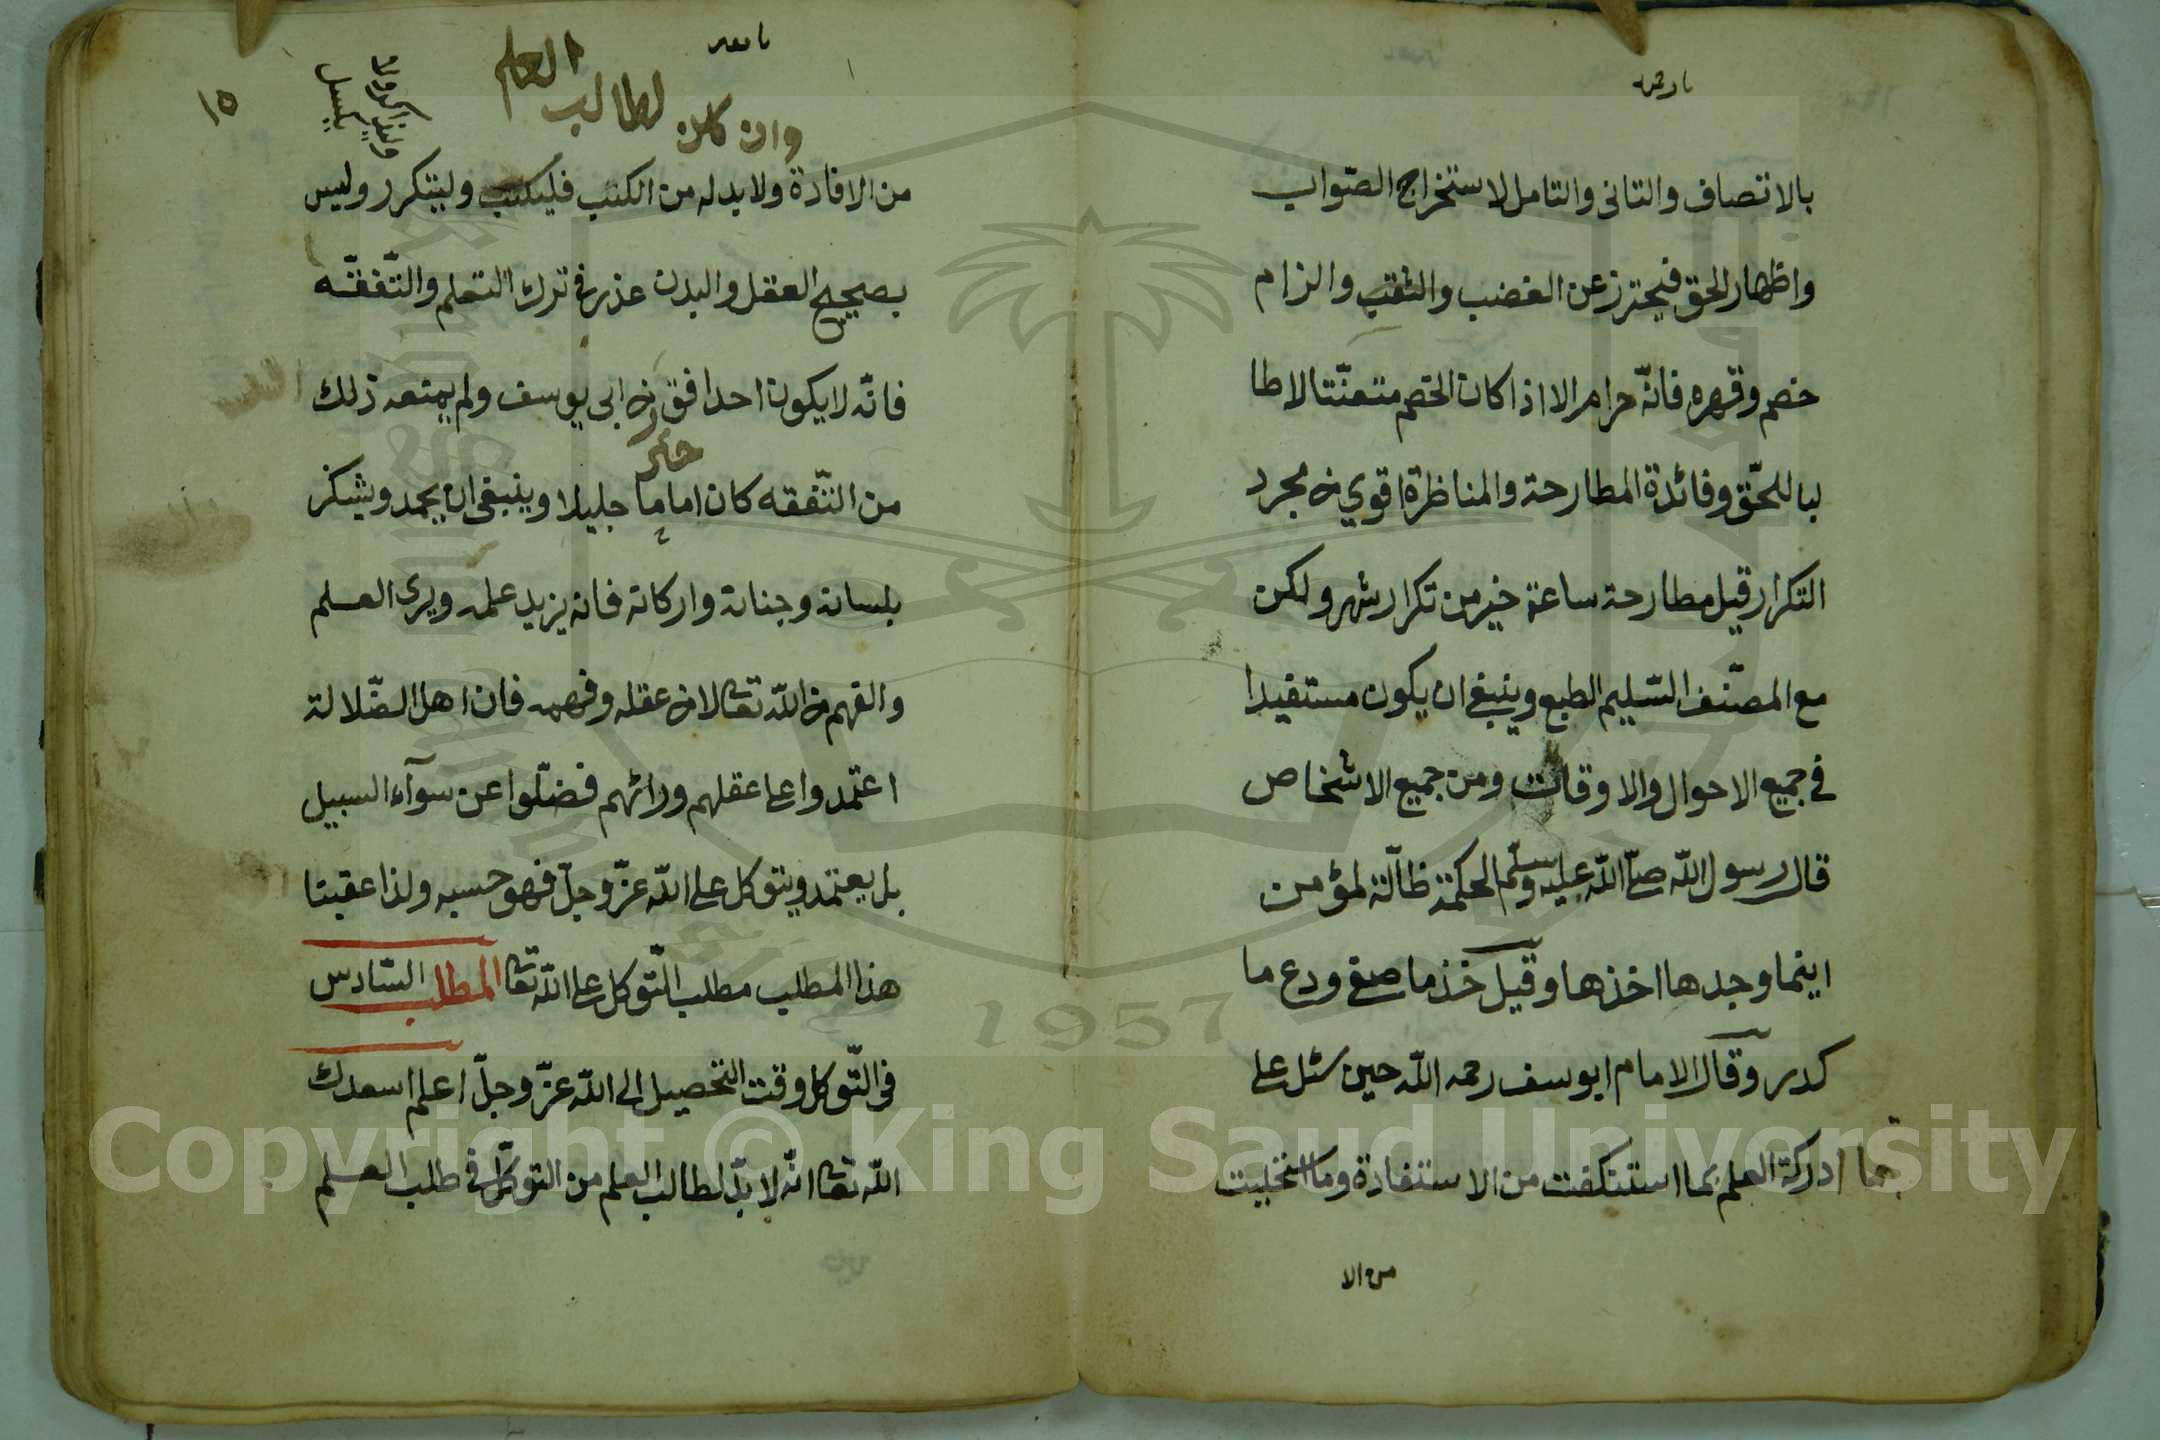 بالانصاف والتانى والتامل لاستخراج الصّواب
واظهار الحق فيحترز عن الغضب والشغب والزام
خصم وقهره فانّه حرام الا اذا كان الخصم متعنّتا لاطا
لبا للحّق وفائدة المطارحة والمناظرة اقوي من مجرد
التكرار قيل مطارحة ساعة خير من تكرار شهر ولكن
مع المصّنف السّليم الطبع وينبغى ان يكون مستفيدا
فى جميع الاحوال والاوقات ومن جميع الاشخاص
قال رسول اللّه صلّى اللّه عليه وسلّم الحكمة ظآلة لمؤمن
اينما وجدها اخذها وقيل خذ ما صفى ودع ما
كدر وقال الامام ابو سف رحمه اللّه حين سئل على
بما ادركة العلم بما استنكفت من الاستفادة وما
من الا
١٥
وان كان لطالب العلم
وليذاكر ولا يكسل
من الافادة ولا بد له من الكتب فليكتب وليتكرر وليس
بصحيح العقل والبدن عذر فى ترك التعلم والتّفقّه
فانّه لا يكون احدا فقر من ابى يوسف ولم يمنعه ذلك
من التّفقه كان اماما جليلا وينبغى ان يحمد ويشكر
بلسانه وجنانه واركانه فانه يزيد علمه ويرى العلم
والفهم من اللّه تعالى لا من عقله وفهمه فان اهل الضّلالة
اعتمدوا على عقلهم ورائهم فضّلوا عن سوآء السبيل
بل يعتمد ويتوكل على اللّه عزّ وجلّ فهو حسبه ولذا عقبنا
هذا المطلب مطلب التّوكل على اللّه تعالى المطلب السّادس
فى التّوكل وقت التحصيل الى اللّه عزّ وجلّ اعلم اسعدك
اللّه تعالى انّه لا بدّ لطالب العلم من التوكّل فى طلب العلم
Copyright © King Saud University
1957